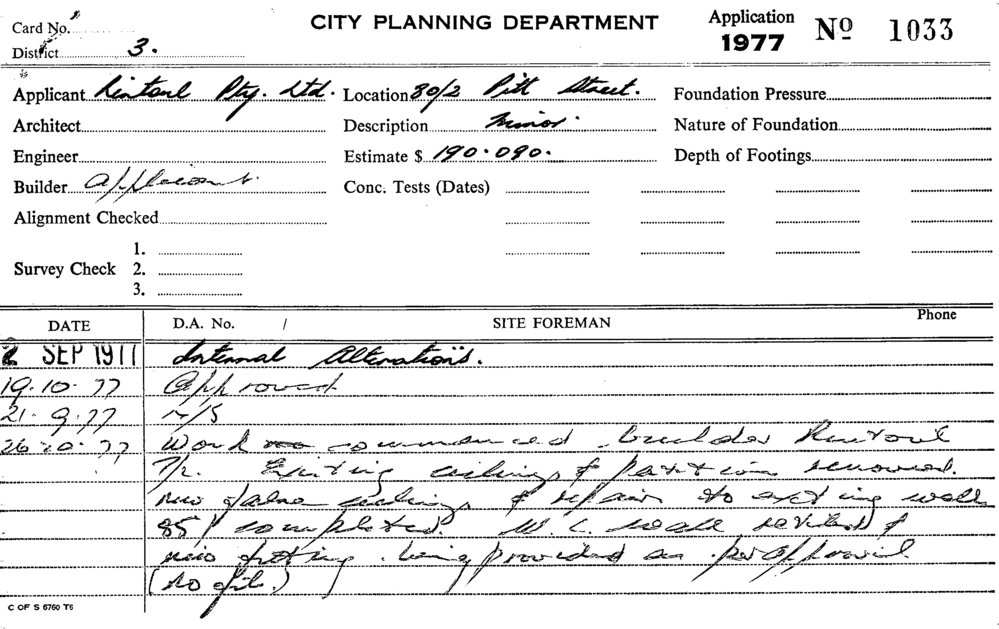 Card No.
CITY PLANNING DEPARTMENT
Application 1977 Nº 1033
District 3.
Applicant Rintoul Pty. Ltd. Location 80/2 Pitt Street. Foundation Pressure
Architect Description Minor. Nature of Foundation
Engineer Estimate $ 190.090. Depth of Footings
Builder Applicant. Conc. Tests (Dates)
Alignment Checked
1.
Survey Check 2.
3.
DATE D.A. No. / SITE FOREMAN Phone
2 SEP 1977 Internal Alterations.
19.10.77 Approved
21.9.77 N/S
26.10.77 Work commenced builder Rintoul
P/L. Existing ceilings & partitions removed.
new false ceilings & repairs to existing walls
85% completed. W.C. walls &
new being provided as per approval
(No file.)
C OF S 6760 T6